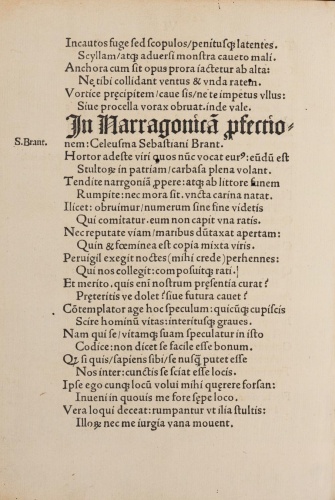 Incautos fuge sed scopulos/penitusqȝ latentes.
Scyllam/atqȝ aduersi monstra caueto mali.
Anchora cum sit opus prora iactetur ab alta:
Ne tibi collidant ventus & vnda ratem.
Vortice pręcipitem/caue sis/ne te impetus vllus:
Siue procella vorax obruat. inde vale.
In Narragonicā ꝓfectio-
S. Brant. nem: Celeusma Sebastiani Brant.
Hortor adeste viri quos nūc vocat eurꝰ: eūdū est
Stultoꝝ in patriam/carbasa plena volant.
Tendite narrgoniā ꝓpere: atqȝ ab littore funem
Rumpite: nec mora sit. vncta carina natat.
Ilicet: obruimur/numerum sine fine videtis
Qui comitatur. eum non capit vna ratis.
Nec reputate viam/maribus dūtaxat apertam:
Quin & fœminea est copia mixta viris.
Peruigil exegit noctes (mihi crede) perhennes:
Qui nos collegit: composuitqȝ rati.
Et merito. quis eni nostrum pręsentia curat?
Pręteritis ve dolet? siue futura cauet?
Cōtemplator age hoc speculum: quicūqȝ cupiscis
Scire hominū vitas: interitusqȝ graues.
Nam qui se/vitamqȝ suam speculatur in isto
Codice: non dicet se facile esse bonum.
Qȝ si quis/sapiens sibi/se nusqȝ putet esse
Nos inter: cunctis se sciat esse locis.
Ipse ego cunqȝ locū volui mihi quęrere forsan:
Inueni in quouis me fore sępe loco.
Vera loqui deceat: rumpantur vt ilia stultis:
Illoꝝ nec me iurgia vana mouent.